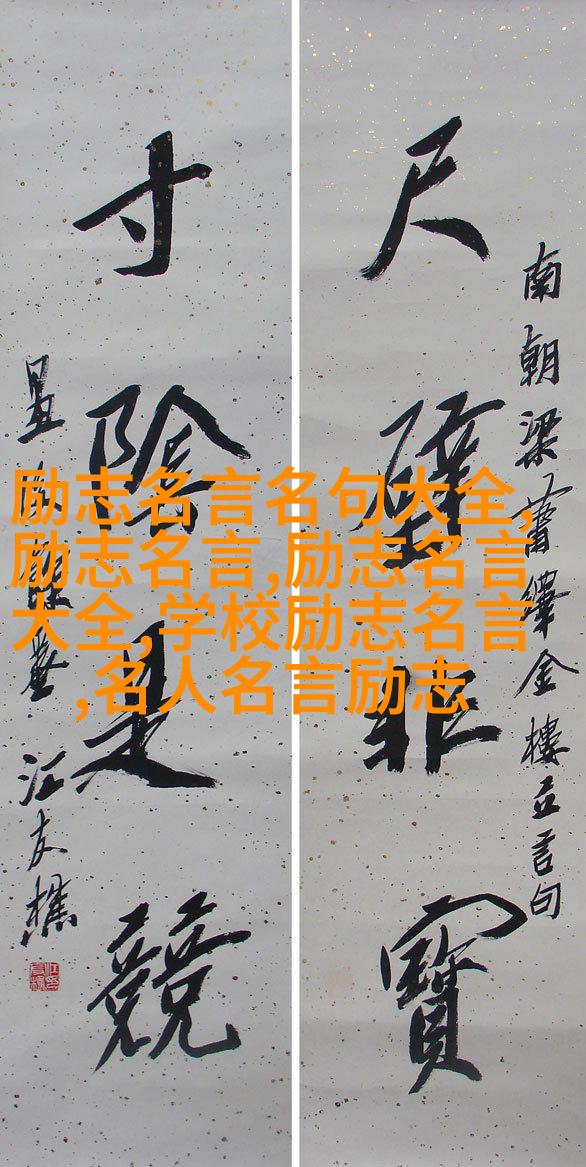 南朝梁蕭繹金樓立言句
尺璧非寶
寸陰是競
汪友樵
励志名言名句大全,
励志名言,励志名言
大全,学校励志名言
,名人名言励志